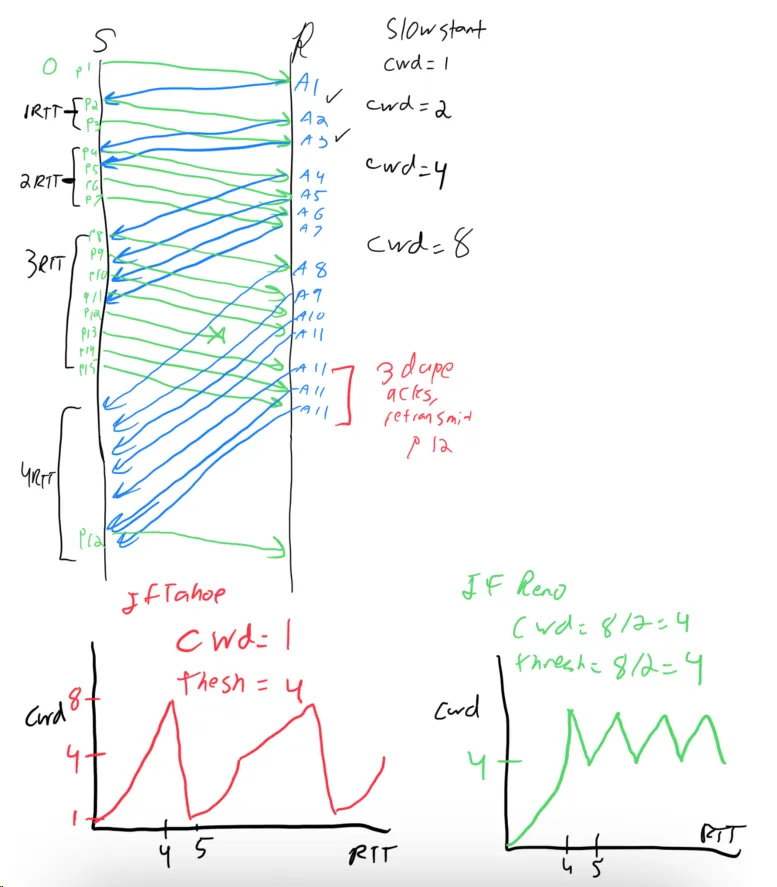 S R
Slow start
cwd = 1
0 P1
A1
1RTT
P2
P3
A2 ✓
A3 ✓
cwd = 2
2RTT
P4
P5
P6
P7
A4
A5
A6
A7
cwd = 4
3RTT
P8
P9
P10
P11
P12
P13
P14
P15
A8
A9
A10
A11
cwd = 8
A11
A11
A11
3 dupe
acks,
retransmit
P12
4RTT
P12
If Tahoe
cwd = 1
thesh = 4
cwd
8
4
1
4 5
RTT
If Reno
cwd = 8/2 = 4
thresh = 8/2 = 4
cwd
4
4 5
RTT